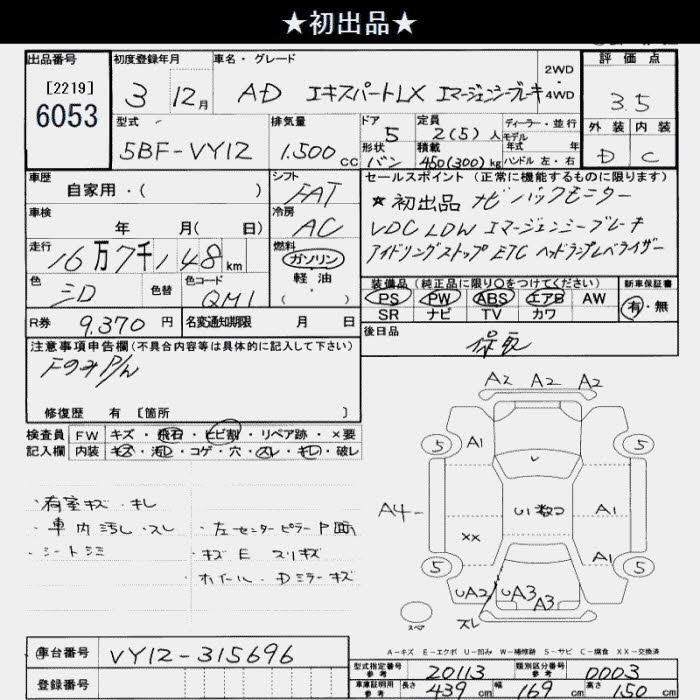 ★初出品★
出品番号
[2219]
6053
初度登録年月
3 12月
車名・グレード
AD エキスパートLX エマージェンシーブレーキ
2WD
・
4WD
評価点
3.5
外装 内装
D C
型式
5BF-VY12
排気量
1.500 cc
ドア
5
形状
バン
定員
2(5)人
積載
450(300)kg
ディーラー・並行
モデル
年式 年
ハンドル 左・右
車歴
自家用・( )
シフト
FAT
車検
年 月( 日)
冷房
AC
走行
16万7千148km
燃料
ガソリン
軽油
・
( )
色
色替
色コード
QM1
R券
9,370円
名変通知期限 月 日
セールスポイント(正常に機能するものに限ります)
★初出品 ナビ バックモニター
VDC LDW エマージェンシーブレーキ
アイドリングストップ ETC ヘッドランプレベライザー
装備品(純正品に限り○をつけてください)
PS PW ABS エアB AW
SR ナビ TV カワ
新車保証書
有・無
後日品
保取
注意事項申告欄(不具合内容等は具体的に記入して下さい)
修復歴 有 [箇所 ]
検査員
記入欄
FW キズ・飛石・ヒビ割・リペア跡・×要
内装 キズ・汚れ・コゲ・穴・スレ・キレ・破レ
・荷室キズ・キレ
・車内汚し・スレ
・シートシミ
・左センターピラー 内面
・キズ E スリキズ
ホイール・Dミラーキズ
A2 A2 A2
5 A1 5
A4 A1
XX
A1
5 5
UA2 UA3 A3
スレ
スペア
A−キズ E−エクボ U−凹み W−補修跡 S−サビ C−腐食 XX−交換済
車台番号
VY12-315696
登録番号
型式指定番号
参考
20113
類別区分番号
参考
0003
車庫証明用
参考
長さ 439cm 幅 169cm 高さ 150cm